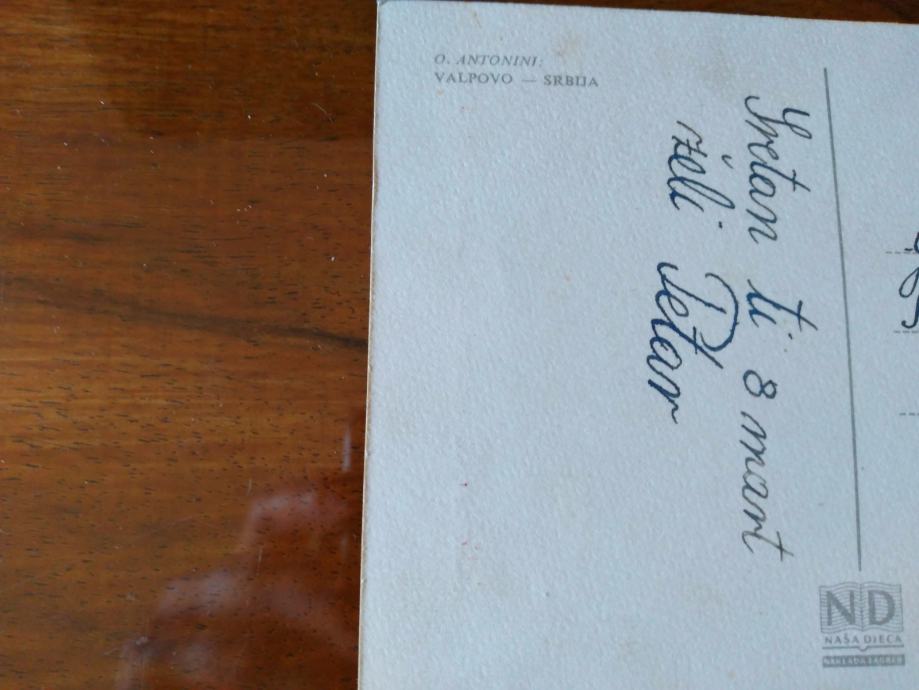 O. ANTONINI:
VALPOVO — SRBIJA
Sretan ti 8 mart
želi Petar
ND
NAŠA DJECA
NAKLADA ZAGREB